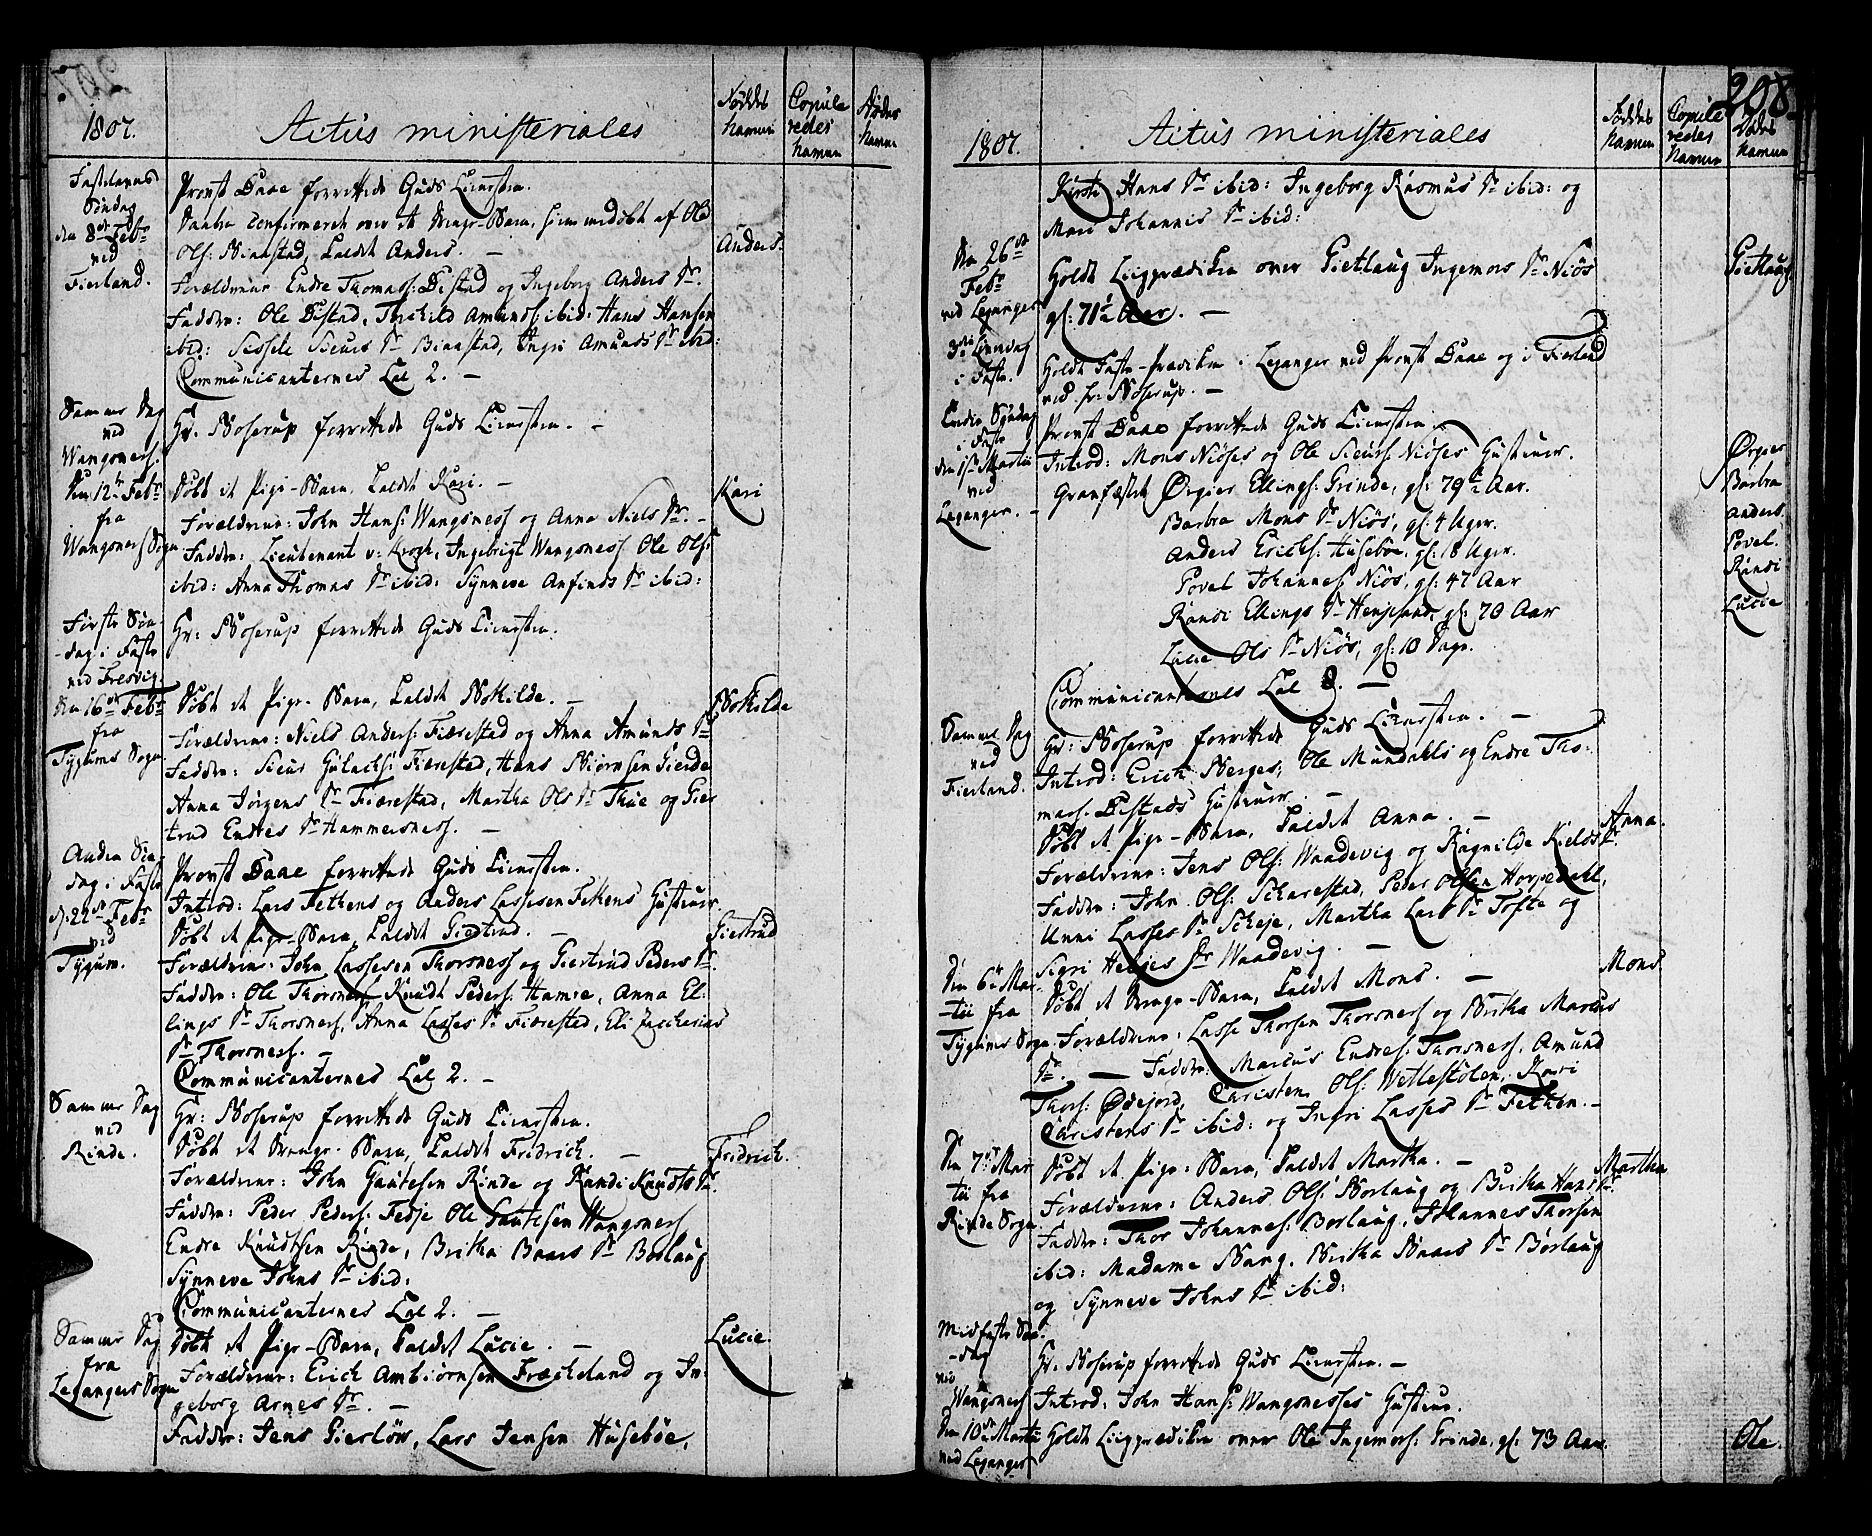 1807.
Actus ministeriales
Føddes Navne
Copule redes Navne
Dødes Navne
Fastelavns Søndag den 8de Febr ved Fierland.
Provst Daae forrettede Guds Tienesten.
Daaben confirmeret over et Drenge-Barn, hiemmedøbt af Ole
Ols: Binnestad, kaldet Anders. —
Anders.
Forældrene Endre Thomass: Distad og Ingeborg Anders Dr.
Faddere: Ole Distad, Torkild Amunds: ibid: Hans Hansen
ibid: Sissele Siurs Dr Binnestad, Ingri Amunds Dr ibid:
Communicanternes Tal 2. —
Samme Dag ved Wangsness.
Hr. Boserup forrettede Guds Tienesten. —
Den 12te Febr fra Wangsness Sogn
Døbt et Pige-Barn, kaldet Kari. —
Kari
Forældrene: John Hans: Wangsness og Anna Niels Dr. —
Faddere: Lieutenant v: Krogh, Ingebrigt Wangsness Ole Ols:
ibid: Anna Thomas Dr ibid: Synneve Anfinds Dr ibid:
Første Søndag i Faste ved Fresvig.
Hr: Boserup forrettede Guds Tienesten.
Den 16de Febr fra Tygums Sogn
Døbt et Pige-Barn, kaldet Bothilde. —
Bothilde
Forældrene: Niels Anders: Fiærestad og Anna Amunds Dr
Faddere: Siur Gulachs: Fiærestad, Hans Biørnsen Gierde
Anna Jørgens Dr Fiærestad, Martha Ols Dr Thue og Gier
trud Endres Dr Hammersness. —
Anden Søndag i Faste d: 22de Febr ved Tygum.
Provst Daae forrettede Guds Tienesten.
Introd: Lars Fethens og Anders Lassesen Fethens Hustruer
Døbt et Pige-Barn, kaldet Giertrud. —
Giertrud
Forældrene: John Lassesen Thorsness og Giertrud Peders Dr.
Faddere: Ole Thorsness Knudt Peders: Hamre, Anna El:
lings Dr Thorsness, Anna Lasses Dr Fiærestad, Eli Zacharias
Dr Thorsness. —
Communicanternes Tal 2. —
Samme Dag ved Rinde.
Hr: Boserup forrettede Guds Tienesten.
Døbt et Drenge-Barn, kaldet Fridrich. —
Fridrich.
Forældrene: John Gautesen Rinde og Randi Knudts Dr.
Faddere: Peder Peders: Fedje Ole Gautesen Wangsness
Endre Knudtsen Rinde, Britha Baars Dr Borlaug
Synneve Johns Dr ibid:
Communicanternes Tal 2. —
Samme Dag fra Leganger Sogn
Døbt et Pige-Barn, kaldet Lucie. —
Lucie.
Forældrene: Erich Ambiørnsen Fræcheland og In:
geborg Arnes Dr. —
Faddere: Jens Gierløw, Lars Jensen Husebøe,
208.
1807.
Actus ministeriales
Føddes Navne
Copule redes Navne
Dødes Navne
Kirsti Hans Dr ibid: Ingeborg Rasmus Dr ibid: og
Mari Johannis Dr ibid:
Den 26de Febr ved Leganger
Holdt Liigprædiken over Gietlaug Ingemors Dr Niøs
gl: 71½ Aar. —
Gietlaug
3die Onsdag i Faste.
Holdt Faste-Prædiken i Leganger ved Provst Daae og i Fierland
ved Hr: Boserup. —
Tredie Søndag i Faste den 1ste Martii ved Leganger. —
Provst Daae forrettede Guds Tienesten.
Introd: Mons Niøses og Ole Siurs: Niøses Hustruer.
Gravfæstet Ørgier Ellings: Grinde, gl: 79½ Aar.
Ørgier
Barbra Mons Dr Niøs, gl: 4 Uger.
Barbra
Anders Erichs: Husebøe, gl: 18 Uger.
Anders.
Povel Johannes: Niøs, gl: 47 Aar
Povel.
Randi Ellings Dr Henjesand, gl: 70 Aar
Randi
Lucie Ols Dr Niøs, gl: 10 Dage.
Lucie
Communicanternes Tal 8. —
Samme Dag ved Fierland.
Hr: Boserup forrettede Guds Tienesten. —
Introd: Erich Berges, Ole Mundahls og Endre Tho:
mass: Distads Hustruer. —
Døbt et Pige-Barn, kaldet Anna. —
Anna.
Forældrene: Jens Ols: Waadevig og Ragnilde Kields Dr.
Faddere: John Ols: Scharestad, Peder Olsen Horpedahl,
Unni Lasses Dr Scheje, Martha Lars Dr Tofte og
Sigri Helges Dr Waadevig. —
Den 6te Martii fra Tygums Sogn
Døbt et Drenge-Barn, kaldet Mons. —
Mons
Forældrene: Lasse Thorsen Thorsness og Britha Marcus
Dr. — Faddere: Marcus Endres: Thorsness, Amund
Thors: Ødejord, Christen Ols: Wettestølen, Kari
Christens Dr ibid: og Ingri Lasses Dr Fethen. —
Den 7de Martii fra Rinde Sogn
Døbt et Pige-Barn, kaldet Martha. —
Martha
Forældrene: Anders Ols: Borlaug og Britha Hans Dr.
Faddere: Thor Johannes: Borlaug, Johannes Thorsen
ibid: Madame Bang, Britha Baars Dr Borlaug
og Synneve Johns Dr ibid:
Midfaste Søndag ved Wangsness
Hr. Boserup forrettede Guds Tienesten. —
Introd: John Hans: Wangsnesses Hustrue.
Den 10de Martii ved Leganger
Holdt Liigprædiken over Ole Ingemors: Grinde, gl: 73 Aar.
Ole.